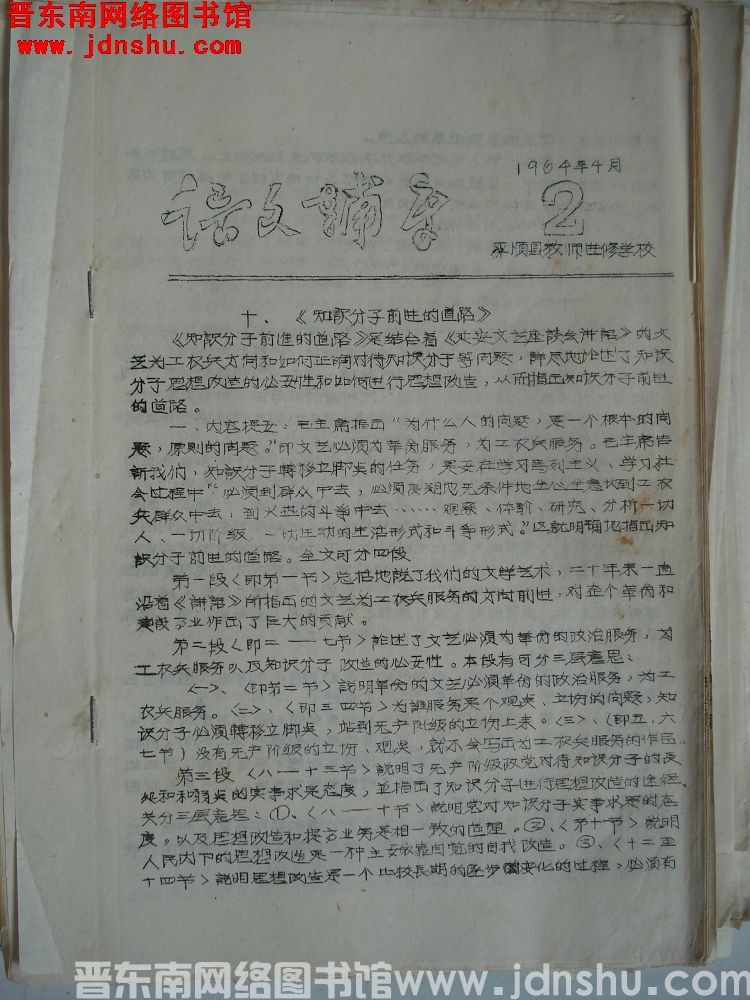 晋东南网络图书馆
www.jdnshu.com
1964年4月
语文辅导
2
平顺县教师进修学校
十、《知識分子前进的道路》
《知識分子前进的道路》是结合着《延安文艺座談会講話》的文
艺为工农兵方向和如何正确对待知识分子等问题，詳尽地论述了知识
分子思想改造的必要性和如何进行思想改造，从而指出知识分子前进
的道路。
一、内容提要：毛主席指出“为什么人的问题，是一个根本的问
题，原则的问题。”即文艺必须为革命服务，为工农兵服务。毛主席告
訴我们，知識分子轉移立脚点的任务，是要在学习馬列主义、学习社
会过程中“必须到群众中去，必须长期地无条件地全心全意地到工农
兵群众中去，到火热的斗争中去……观察、体驗、研究、分析一切
人、一切阶级、一切生动的生活形式和斗争形式。”这就明确地指出知
識分子前进的道路。全文可分四段
第一段〈即第一节〉总括地說了我们的文学艺术，二十年来一直
沿着《講話》所指出的文艺为工农兵服务的方向前进，对整个革命和
建設事业作出了巨大的贡献。
第二段〈即二——七节〉論述了文艺必须为革命的政治服务，为
工农兵服务以及知识分子 改造的必要性。本段有可分三层意思：
〈一〉、〈即第二节〉說明革命的文艺必须革命的政治服务，为工
农兵服务。〈二〉、〈即三四节〉为誰服务是个观点、立场的问题，知
识分子必须轉移立脚点，站到无产阶级的立场上来。〈三〉、(即五、六
七节）没有无产阶级的立场、观点，就不会写出为工农兵服务的作品。
第三段〈八——十三节〉說明了无产阶级政党对待知识分子的长
处和和弱点的实事求是态度，並指出了知识分子进行思想改造的途径。
共分三层意思：①、〈八——十节〉說明党对知识分子实事求是的态
度。以及思想改造和提高业务是相一致的道理。②、〈第十一节〉說明
人民内下的思想改造是一种主要依靠自觉的自我改造。③、〈十二至
十四节〉說明思想改造是一个比较长期的逐步变化的过程，必须有
晋东南网络图书馆 www.jdnshu.com